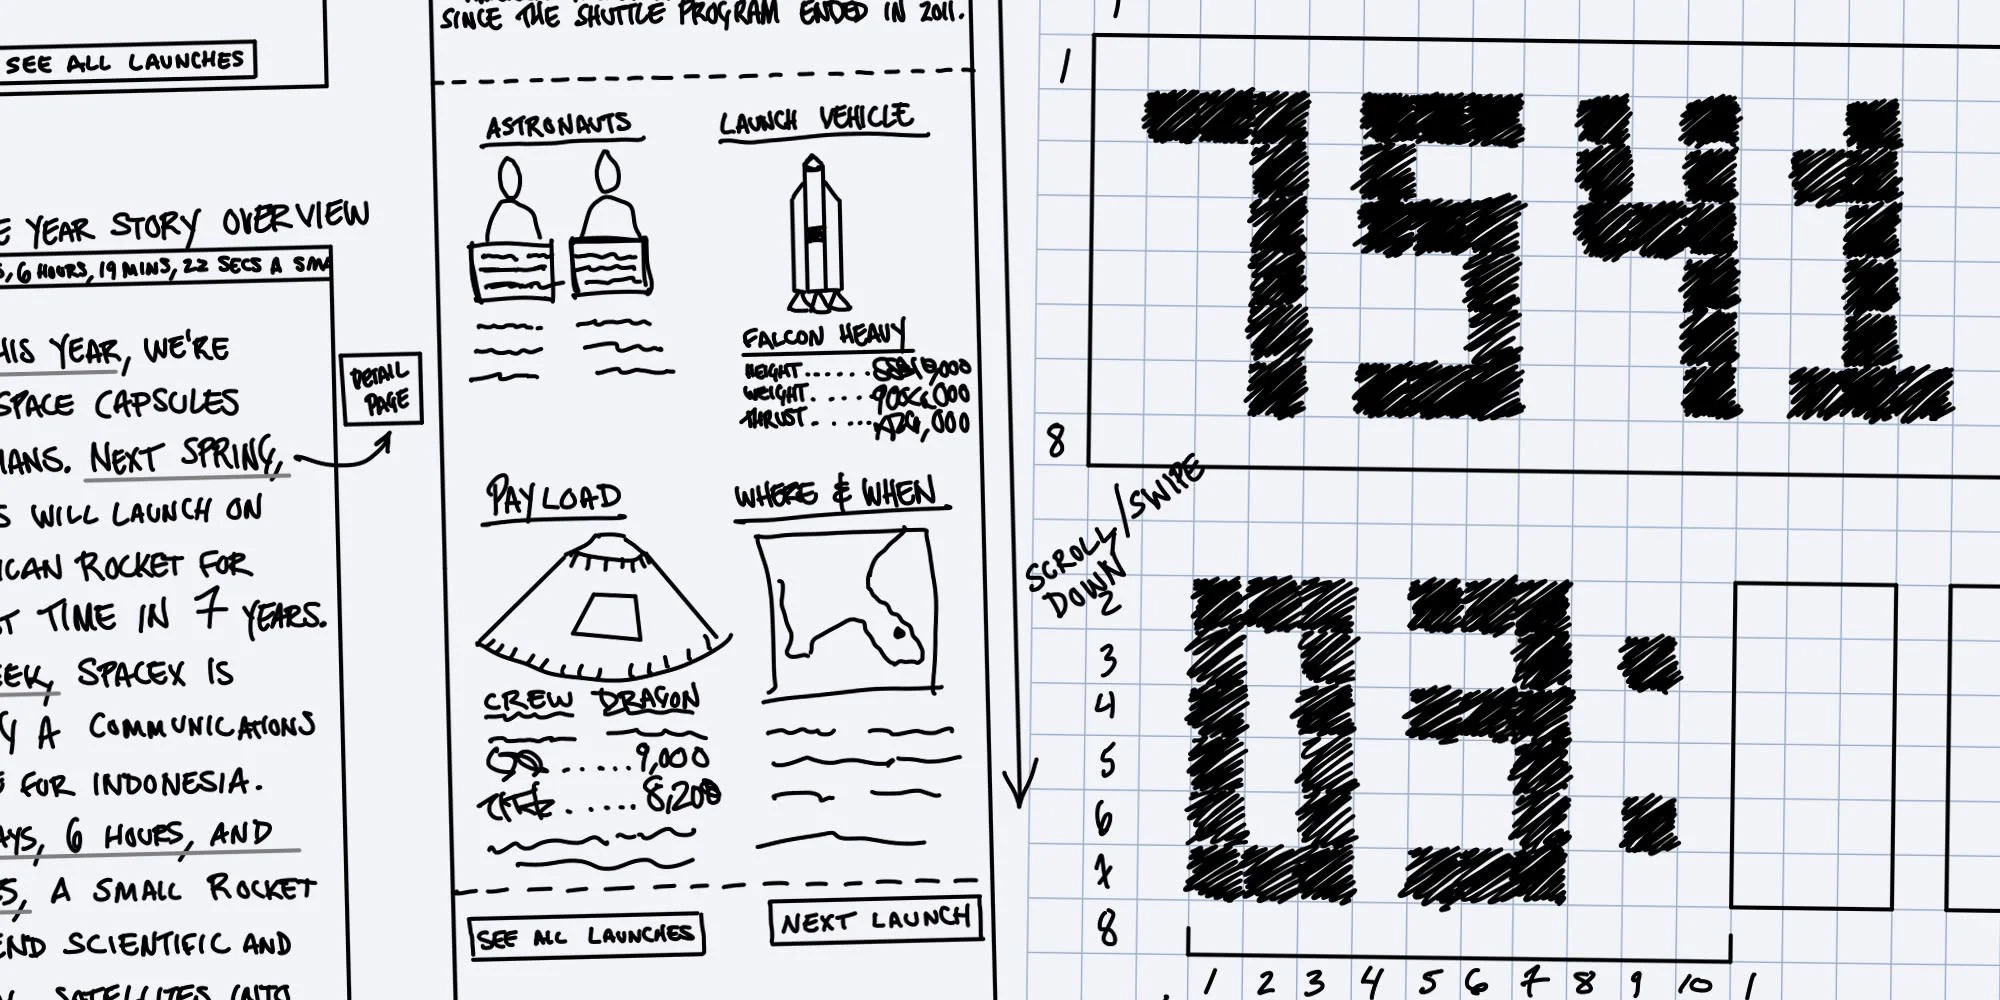 SEE ALL LAUNCHES
E YEAR STORY OVERVIEW
S, 6 HOURS, 19 MINS, 22 SECS A SMA
HIS YEAR, WE'RE
SPACE CAPSULES
IANS. NEXT SPRING,
S WILL LAUNCH ON
ICAN ROCKET FOR
ST TIME IN 7 YEARS.
EEK, SPACEX IS
Y A COMMUNICATIONS
E FOR INDONESIA.
AYS, 6 HOURS, AND
S, A SMALL ROCKET
END SCIENTIFIC AND
SATELLITES INTO
DETAIL
PAGE
SINCE THE SHUTTLE PROGRAM ENDED IN 2011.
ASTRONAUTS
LAUNCH VEHICLE
FALCON HEAVY
HEIGHT......
WEIGHT.....
THRUST.....
PAYLOAD
WHERE & WHEN
CREW DRAGON
......9,000
.....8,200
SEE ALL LAUNCHES
NEXT LAUNCH
SCROLL/SWIPE
DOWN
1
7541
8
03:
2
3
4
5
6
7
8
1 2 3 4 5 6 7 8 9 10 1